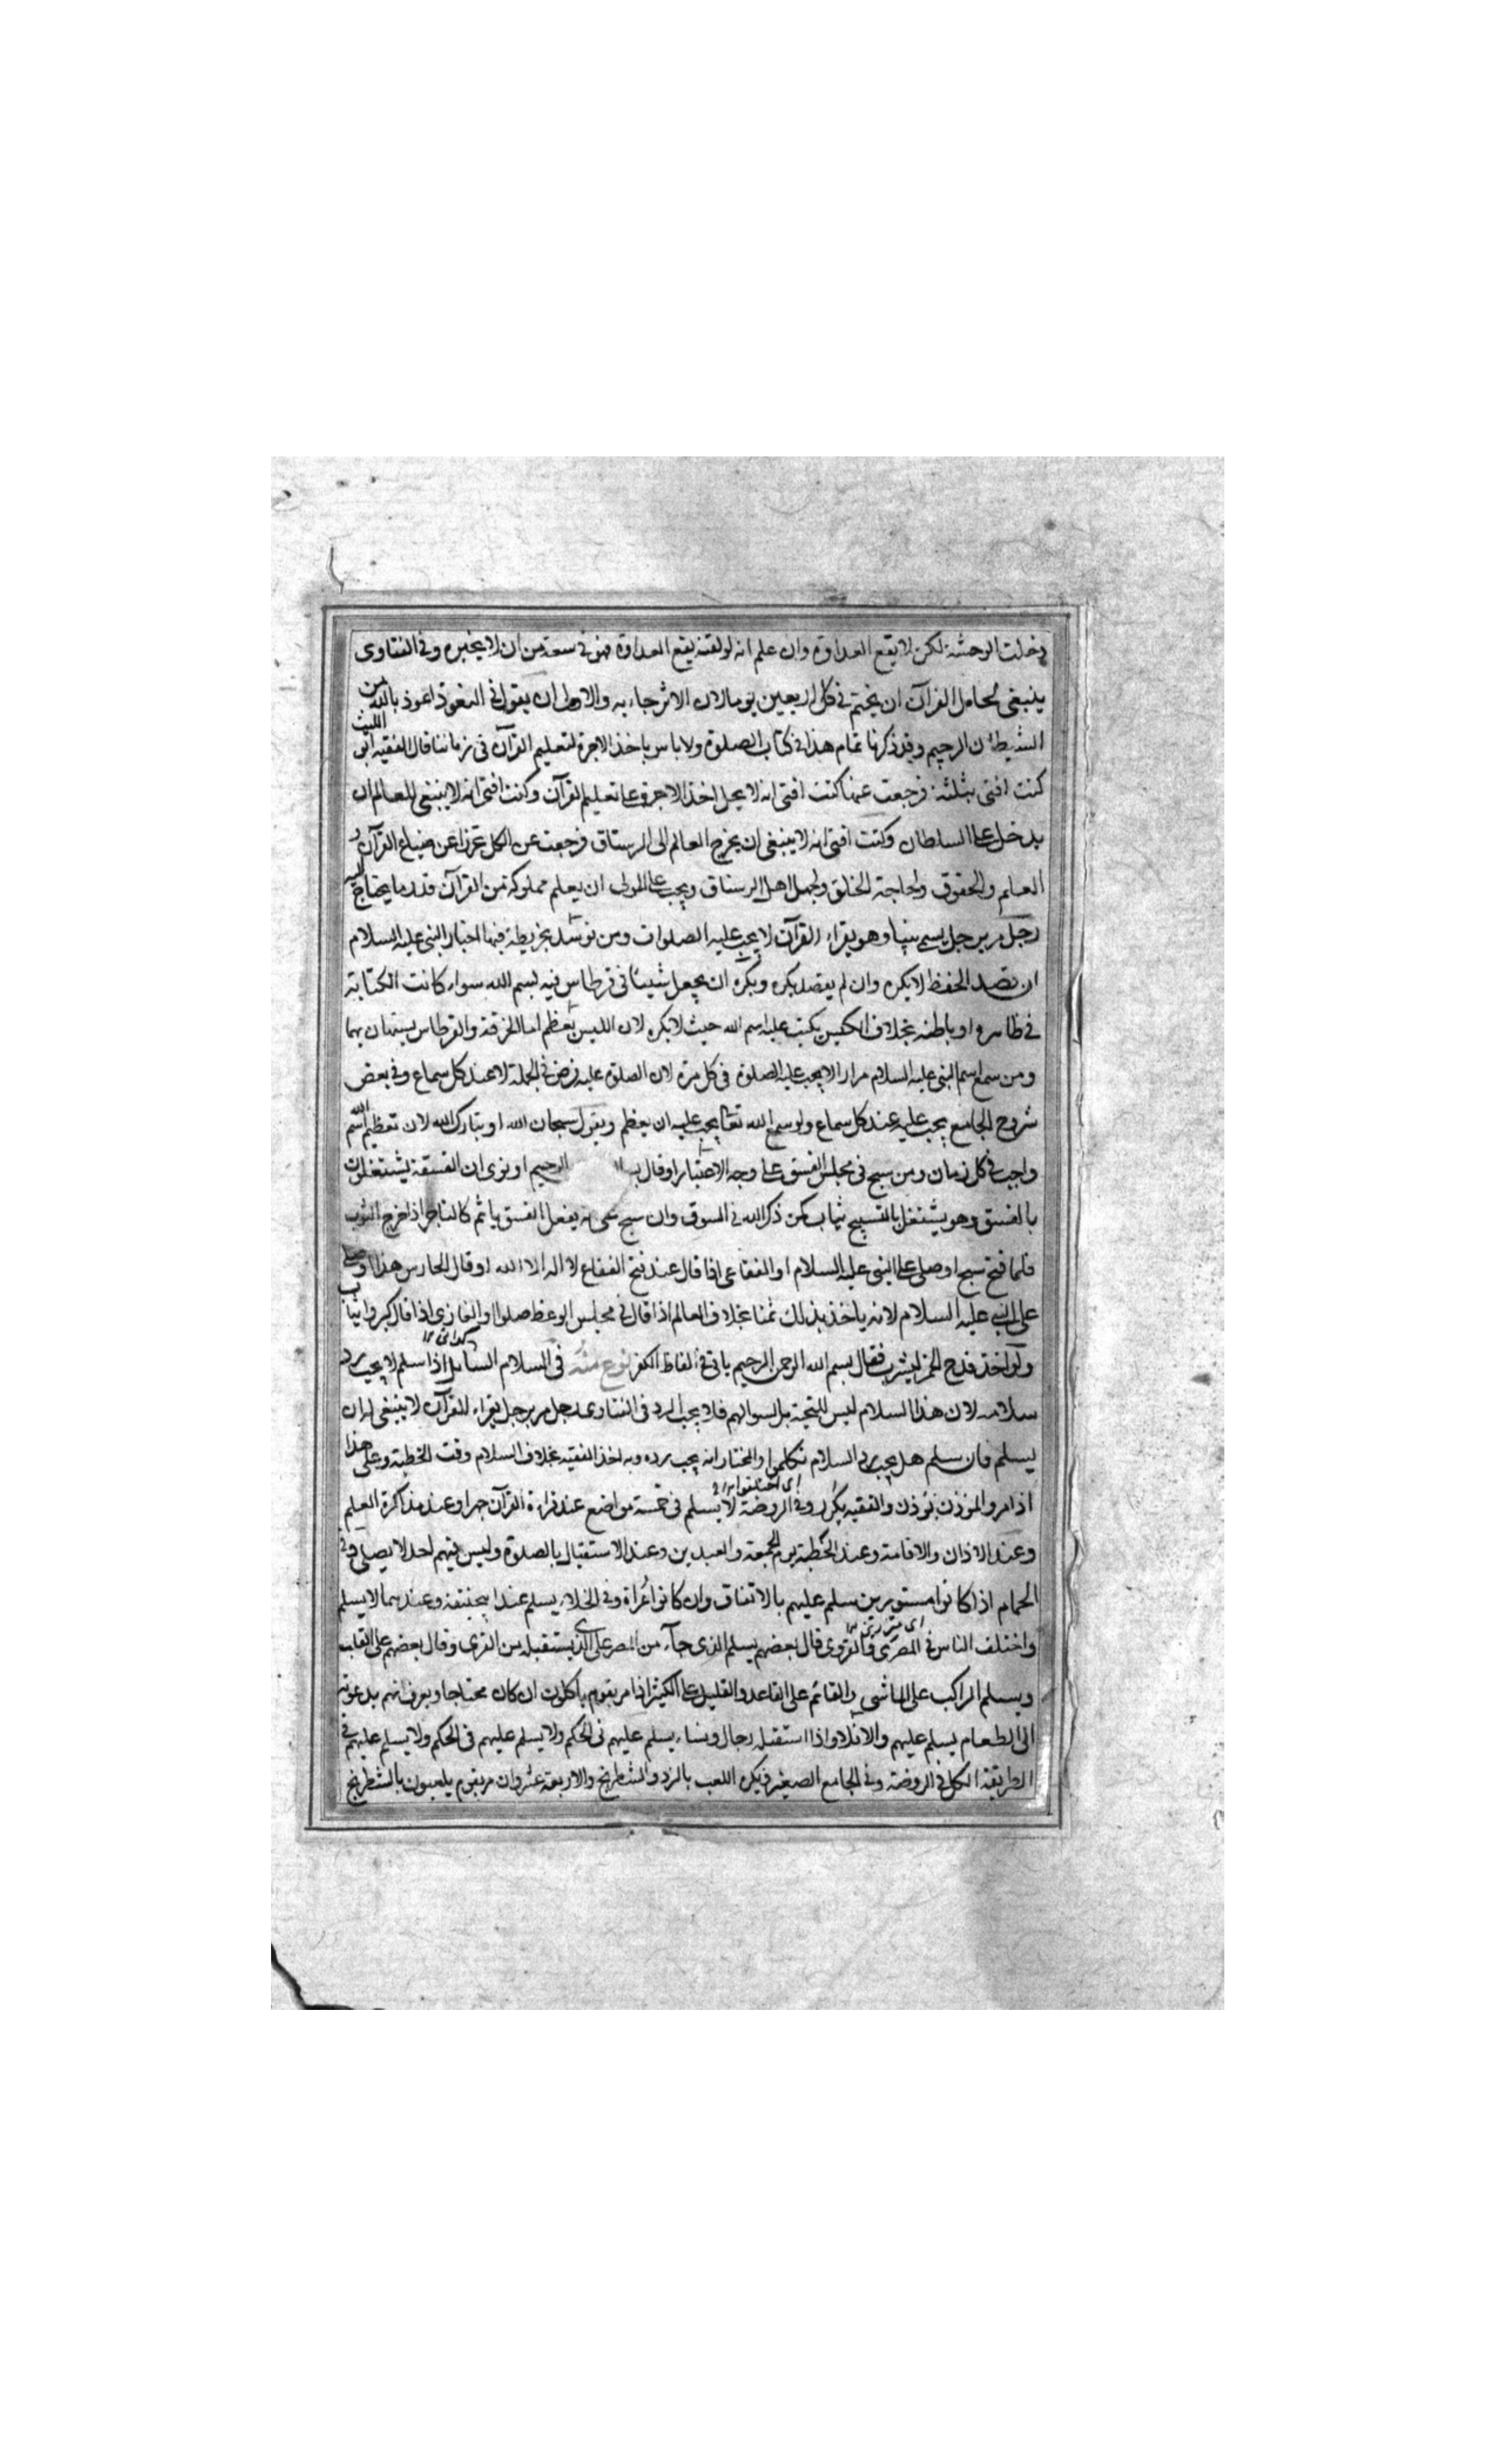 دخلت الوحشة لكن لا يقع العداوة وان علم انه لو لقنه يقع العداوة فهو في سعة من ان لا يخبره وفي الفتاوى
ينبغي لحامل القرآن ان يختم في كل اربعين يوما لان الاثر جاء به والاولى ان يقول في التعوذ اعوذ بالله من
الشيطان الرجيم وقد ذكرنا تمام هذا في كتاب الصلوة ولا باس باخذ الاجرة لتعليم القرآن في زماننا قال الفقيه ابى الليث
كنت افتى بثلثة فرجعت عنها كنت افتى انه لا يحل اخذ الاجرة على تعليم القرآن وكنت افتى انه لا ينبغي للعالم ان
يدخل على السلطان وكنت افتى انه لا ينبغي ان يخرج العالم الى الرستاق فرجعت عن الكل تحرزا عن ضياع القرآن و
العلم والحقوق ولحاجة الخلق ولجهل اهل الرستاق ويجب على المولى ان يعلم مملوكه من القرآن قدر ما يحتاج اليه
رجل مر برجل يسمى نبيا وهو يقراء القرآن لا يجب عليه الصلوات ومن توسد بخريطة فيها اخبار النبي عليه السلام
ان قصد الحفظ لا يكره وان لم يقصد يكره ويكره ان يجعل شيئا في قرطاس فيه بسم الله سواء كانت الكتابة
في ظاهره او باطنه بخلاف الكيس يكتب عليه اسم الله حيث لا يكره لان الكيس يعظم اما الخرقة والقرطاس يستهان بهما
ومن سمع اسم النبي عليه السلام مرارا لا يجب عليه الصلوة في كل مرة لان الصلوة عليه فرض في الجملة لا عند كل سماع وفي بعض
شروح الجامع يجب عليه عند كل سماع ولو سمع الله تعا يجب عليه ان يعظم ويقول سبحان الله او تبارك الله لان تعظيم اسم الله
واجب في كل زمان ومن سبح في مجلس الفسق على وجه الاعتبار او قال بـ الرحيم او نوى ان الفسقة يشتغلون
بالفسق وهو يشتغل بالتسبيح يثاب كمن ذكر الله في السوق وان سبح على انه يفعل الفسق ياثم كالتاجر اذا خرج الثوب
فلما فتح سبح او صلى على النبي عليه السلام او الفقاعى اذا قال عند فتح الفقاع لا اله الا الله او قال الحارس هذا او صلى
على النبي عليه السلام لانه ياخذ بذلك ثمنا بخلاف العالم اذا قال في مجلس الوعظ صلوا او الغازى اذا قال كبروا يثاب
ولو اخذ قدح الخمر ليشرب فقال بسم الله الرحمن الرحيم ياتى في الفاظ الكفر نوع منه في السلام السايل اذا سلم لا يجب رد
سلامه لان هذا السلام ليس للتحية بل لسوالهم فلا يجب الرد في الفتاوى رجل مر برجل يقراء القرآن لا ينبغي له ان
يسلم فان سلم هل يجب رد السلام تكلموا والمختار انه يجب رده وبه اخذ الفقيه بخلاف السلام وقت الخطبة وعلى هذا
اذا مر والمؤذن يؤذن والفقيه يكرر وفي الروضة لا يسلم في خمسة مواضع عند قراءة القرآن جهرا وعند مذاكرة العلم
وعند الاذان والاقامة وعند الخطبة يوم الجمعة والعيدين وعند الاستقبال بالصلوة وليس فيهم احد لا يصلى وفي
الحمام اذا كانوا مستورين سلم عليهم بالاتفاق وان كانوا عراة وفي الخلاء يسلم عند ابيحنيفة وعندهما لا يسلم
واختلف الناس في المصرى والقروى قال بعضهم يسلم الذى جاء من المصر على الذى يستقبله من القرى وقال بعضهم على القلب
ويسلم الراكب على الماشى والقائم على القاعد والقليل على الكثير اذا مر بقوم ياكلون ان كان محتاجا ويعرف انهم يدعونه
الى الطعام يسلم عليهم والا فلا واذا استقبله رجال ونساء يسلم عليهم في الحكم ولا يسلم عليهم في الحكم ولا يسلم عليهم في
الطريقة الكل في الروضة وفي الجامع الصغير يكره اللعب بالنرد والشطرنج والاربعة عشر وان مر بقوم يلعبون بالشطرنج